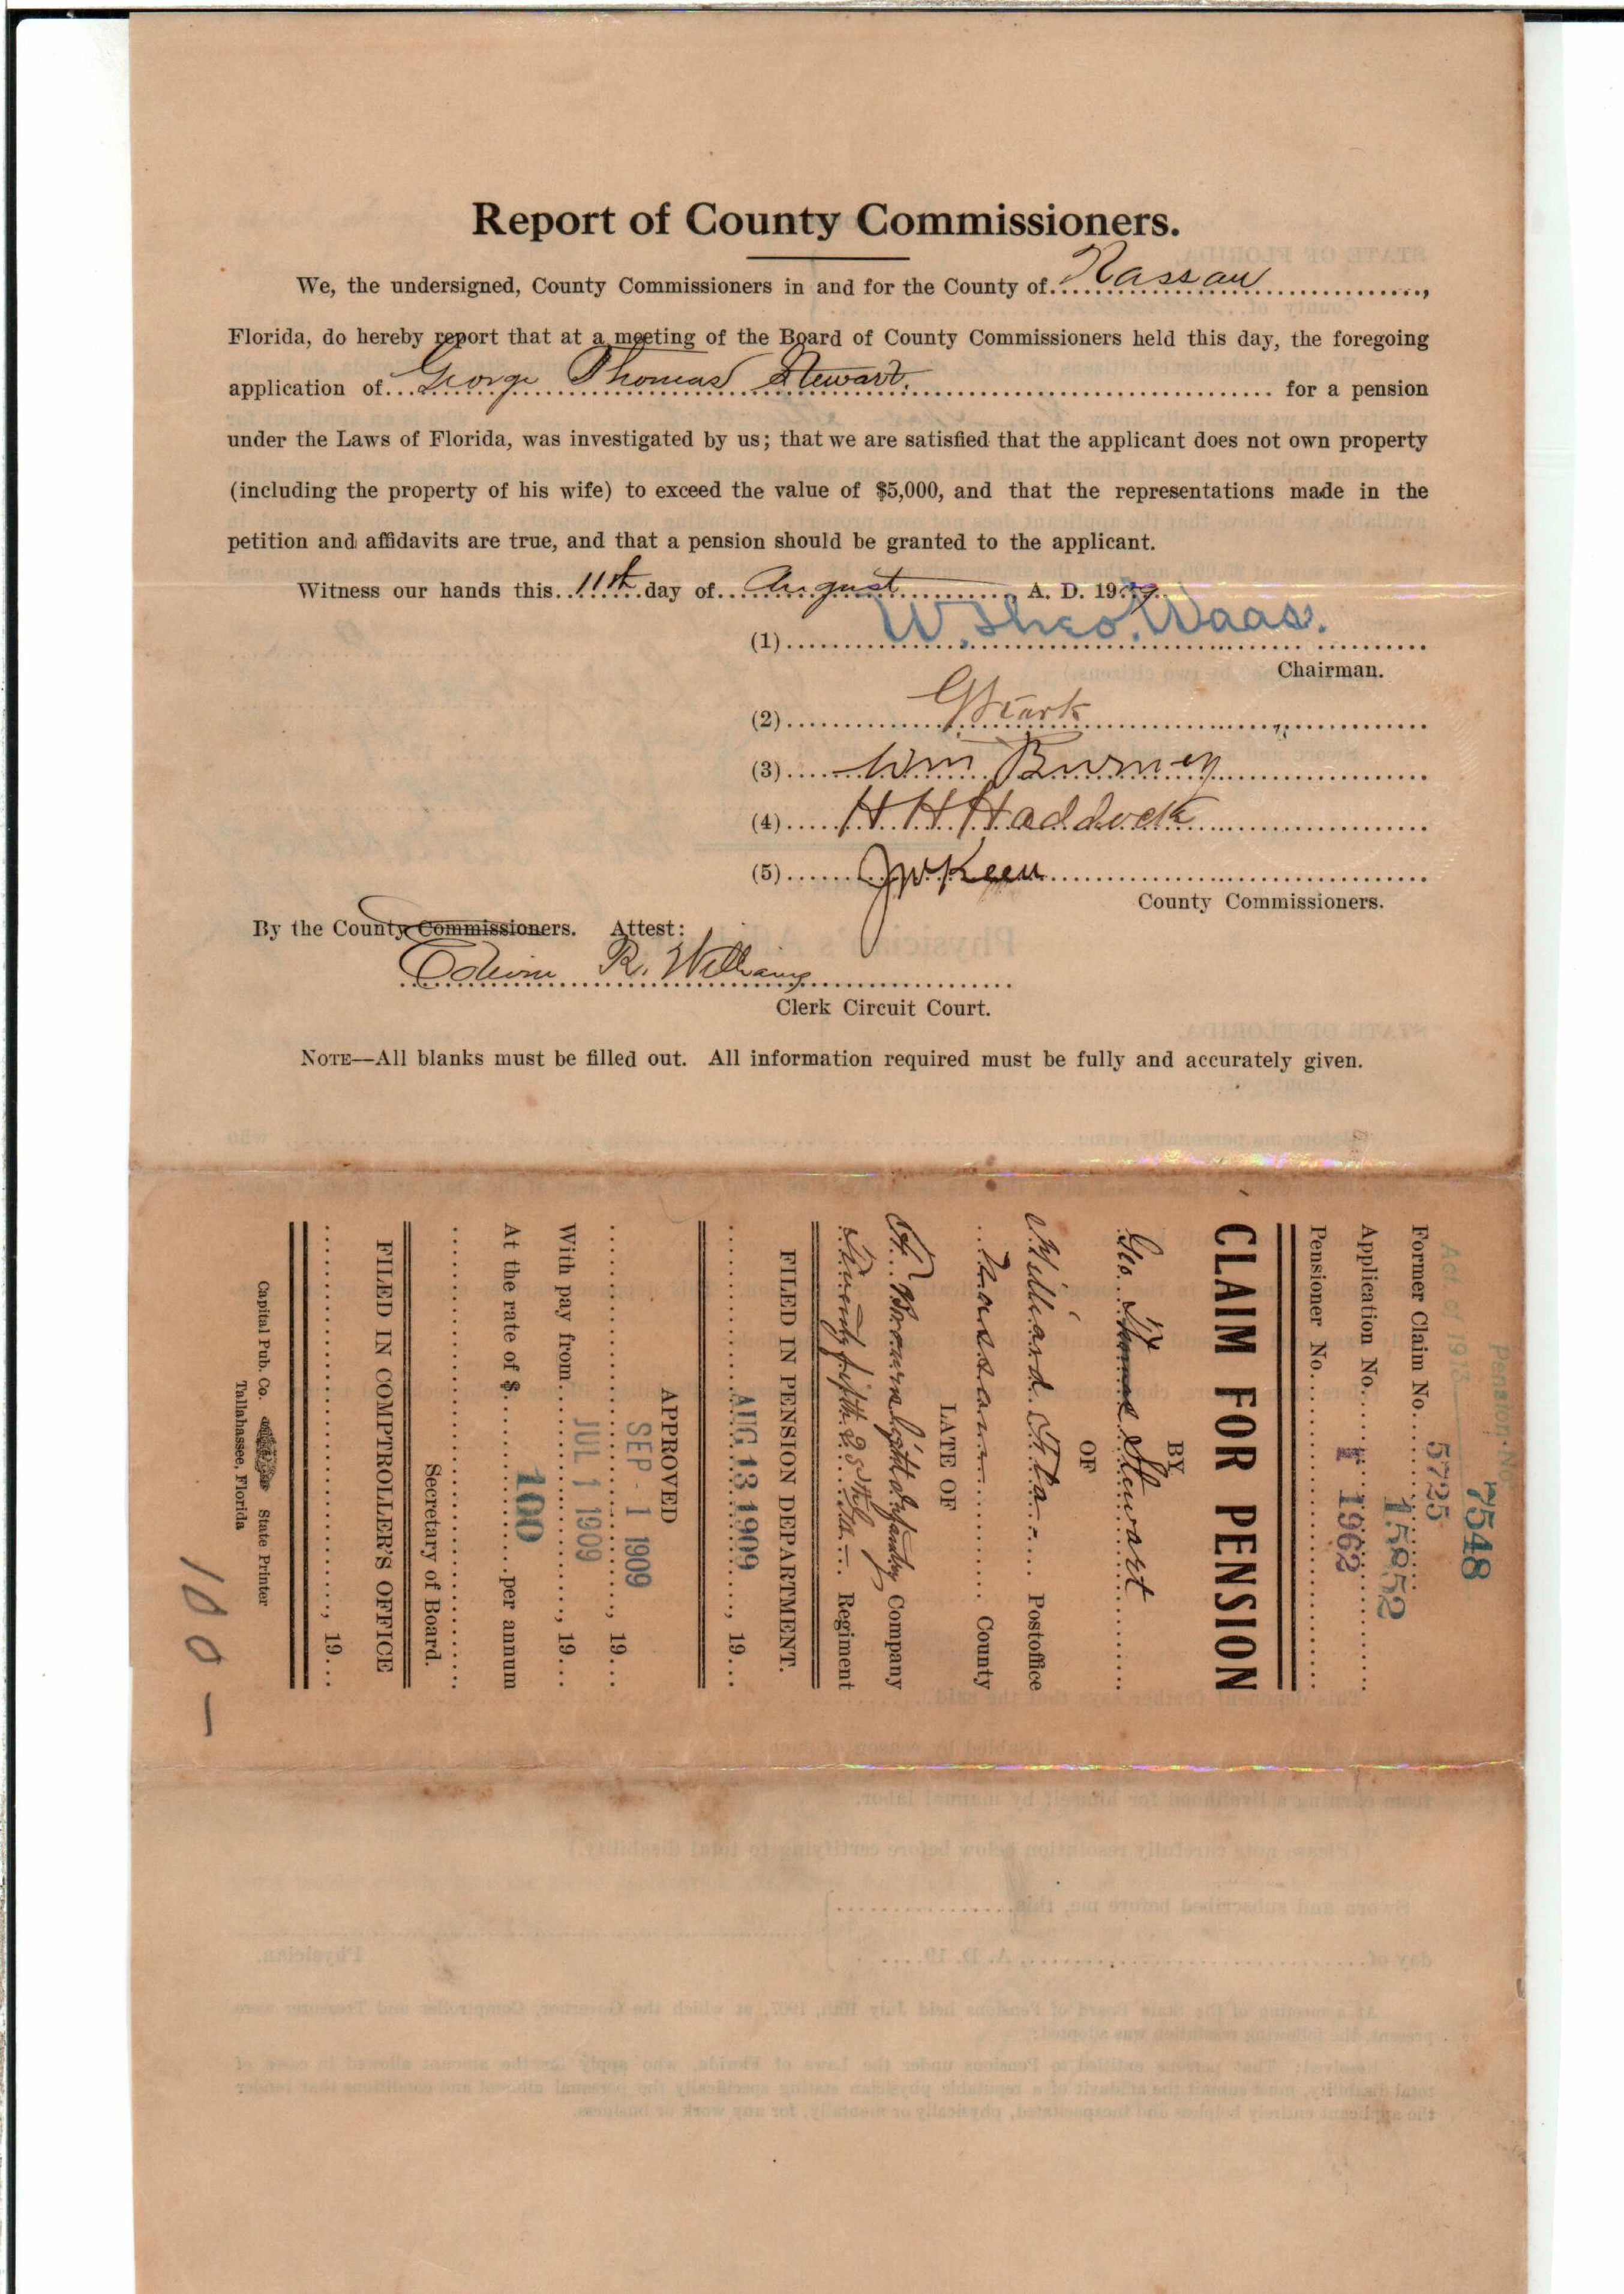 Report of County Commissioners.
We, the undersigned, County Commissioners in and for the County of....Nassau....,
Florida, do hereby report that at a meeting of the Board of County Commissioners held this day, the foregoing
application of...George Thomas Stewart.... for a pension
under the Laws of Florida, was investigated by us; that we are satisfied that the applicant does not own property
(including the property of his wife) to exceed the value of $5,000, and that the representations made in the
petition and affidavits are true, and that a pension should be granted to the applicant.
Witness our hands this..11th..day of...August...., A. D. 1909.
(1) W. Theo. Waas.
Chairman.
(2)
(3) Wm Burney
(4) H H Haddock
(5) JW Keen
County Commissioners.
By the County Commissioners. Attest:
Edwin R. Williams
Clerk Circuit Court.
NOTE—All blanks must be filled out. All information required must be fully and accurately given.
Pension No.
7548
Act. of 1913
Former Claim No. 5725
15852
Application No.
1962
Pensioner No.
CLAIM FOR PENSION
BY
Geo. Thomas Stewart
OF
Hilliard Fla. Postoffice
Nassau County
LATE OF
Light Infantry Company
Twenty fifth 25th Ga. Regiment
FILED IN PENSION DEPARTMENT.
AUG 13 1909, 19...
APPROVED
SEP - 1 1909, 19...
With pay from JUL 1 1909, 19...
At the rate of $ 100 per annum
Secretary of Board.
FILED IN COMPTROLLER'S OFFICE
, 19...
Capital Pub. Co. State Printer
Tallahassee, Florida
100 —